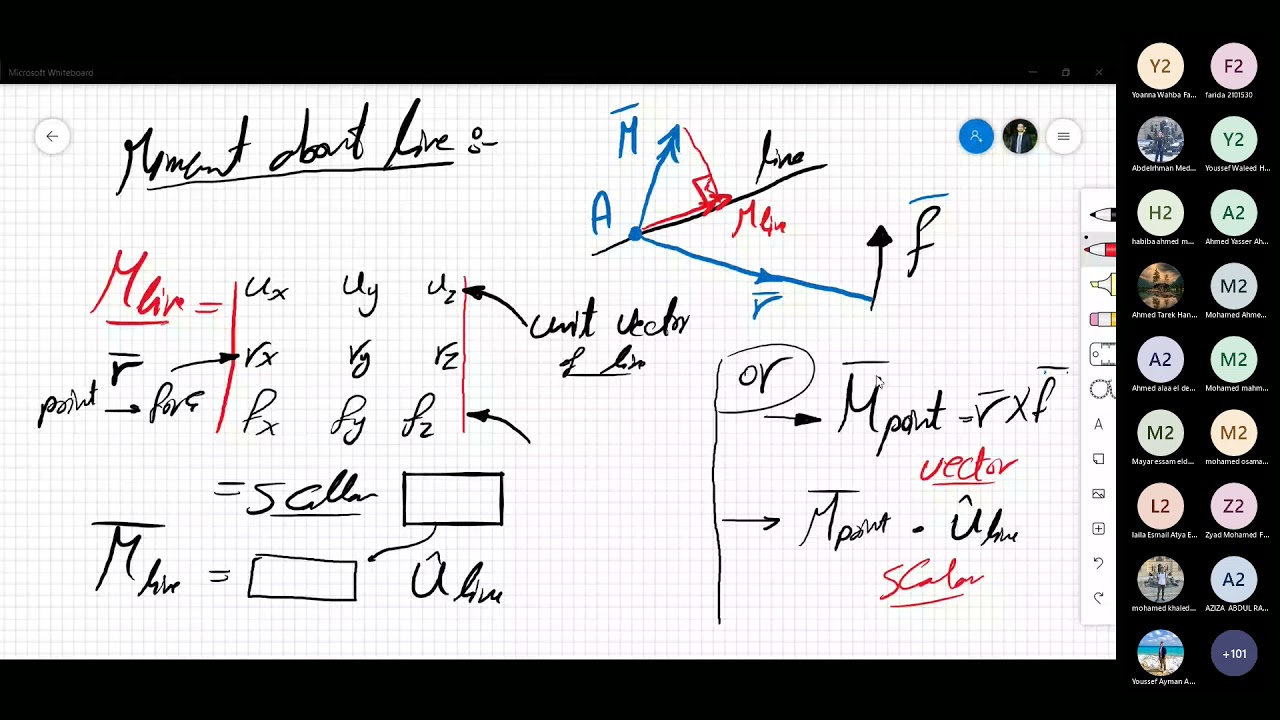 Microsoft Whiteboard
Moment about line :-
M
A
line
Mline
r
f
Mline = | ux uy uz |
unit vector
of line
r
rx ry rz
point → force
fx fy fz
= Scallar
Mline = Ûline
or
→ Mpoint = r x f
vector
→ Mpoint . Ûline
Scalar
Y2 F2
Yoanna Wahba Fa... farida 2101530
Y2
Abdelrhman Med... Youssef Waleed H...
H2 A2
habiba ahmed m... Ahmed Yasser Ah...
M2
Ahmed Tarek Han... Mohamed Ahme...
A2 M2
Ahmed alaa el de... Mohamed mahm...
M2 M2
Mayar essam eld... mohamed osama...
L2 Z2
laila Esmail Atya E... Zyad Mohamed F...
A2
mohamed khaled... AZIZA ABDUL RA...
+101
Youssef Ayman A...